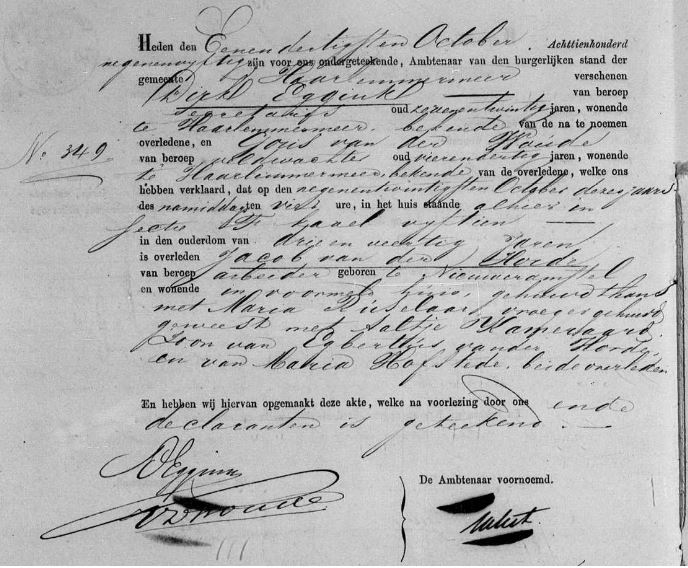 Heden den Eenendertigsten October Achttienhonderd
negenenvyftig zijn voor ons ondergeteekende, Ambtenaar van den burgerlijken stand der
gemeente Haarlemmermeer verschenen
Dirk Eggink van beroep
Secretaris oud zevenentwintig jaren, wonende
te Haarlemmermeer, bekende van de na te noemen
overledene, en Joris van der Woude
van beroep veldwachter oud vierendertig jaren, wonende
te Haarlemmermeer, bekende van de overledene, welke ons
hebben verklaard, dat op den negenentwintigsten October dezes jaars
des namiddags ten vier ure, in het huis staande alhier in
Sectie F Kavel vyftien
in den ouderdom van drie en veertig Jaren
is overleden Jacob van der Horde
van beroep arbeider geboren te Nieuweramstel
en wonende in voormeld huis, gehuwd thans
met Maria vroeger gehuwd
geweest met Aaltje
Zoon van Egbertus van der Horde
en van Maria Hofstede, beide overleden
En hebben wij hiervan opgemaakt deze akte, welke na voorlezing door ons en de
declaranten is geteekend.
No. 349
DEggink
De Ambtenaar voornoemd.